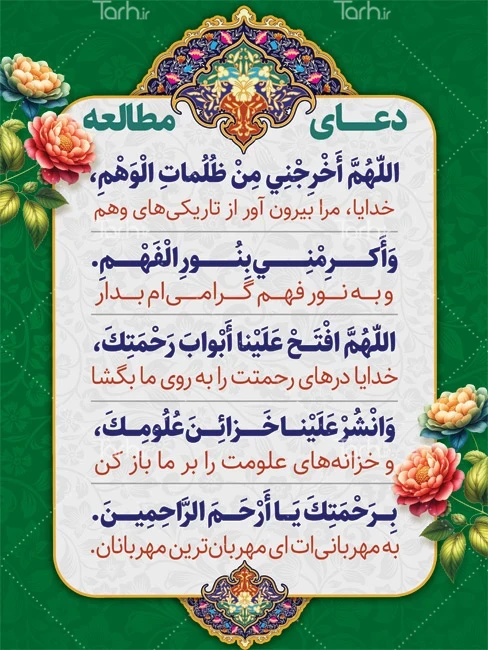 Tarh.ir
Tarh.ir
دعای مطالعه
اللّهُمَّ أَخْرِجْنِي مِنْ ظُلُماتِ الْوَهْمِ،
خدایا، مرا بیرون آور از تاریکی‌های وهم
وَأَكرِمْنِي بِنُورِ الْفَهْمِ.
و به نور فهم گرامی‌ام بدار
اللّهُمَّ افْتَحْ عَلَيْنا أَبْوابَ رَحْمَتِكَ،
خدایا درهای رحمتت را به روی ما بگشا
وَانْشُرْ عَلَيْنا خَزائِنَ عُلُومِكَ،
و خزانه‌های علومت را بر ما باز کن
بِرَحْمَتِكَ يَا أَرْحَمَ الرَّاحِمِينَ.
به مهربانی‌ات ای مهربان‌ترین مهربانان.